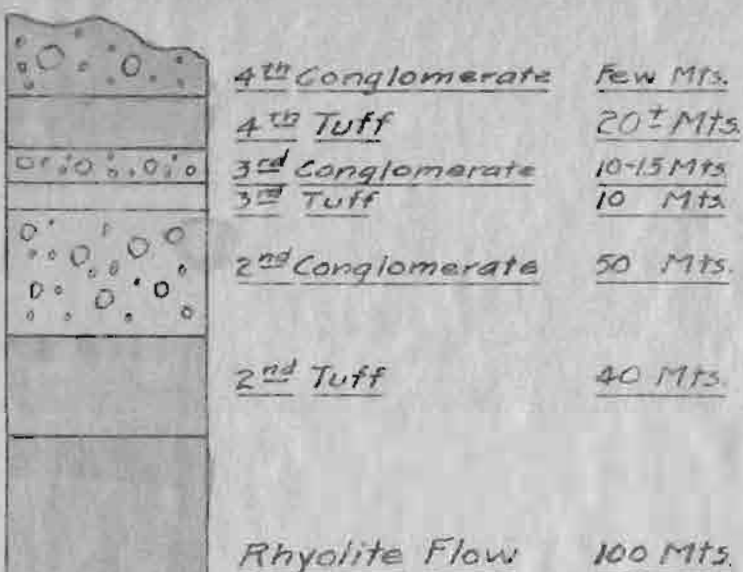 4th Conglomerate Few Mts.
4th Tuff 20± Mts.
3rd Conglomerate 10-15 Mts.
3rd Tuff 10 Mts.
2nd Conglomerate 50 Mts.
2nd Tuff 40 Mts.
Rhyolite Flow 100 Mts.